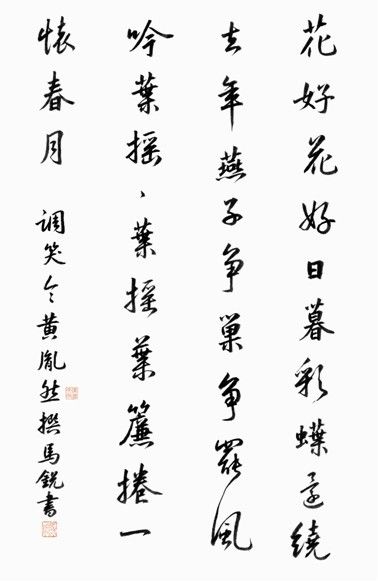 花好花好日暮彩蝶還繞
去年燕子争巢争罷風
吟葉搖、葉搖葉簾捲一
懷春月
調笑令黃胤然撰馬銳書